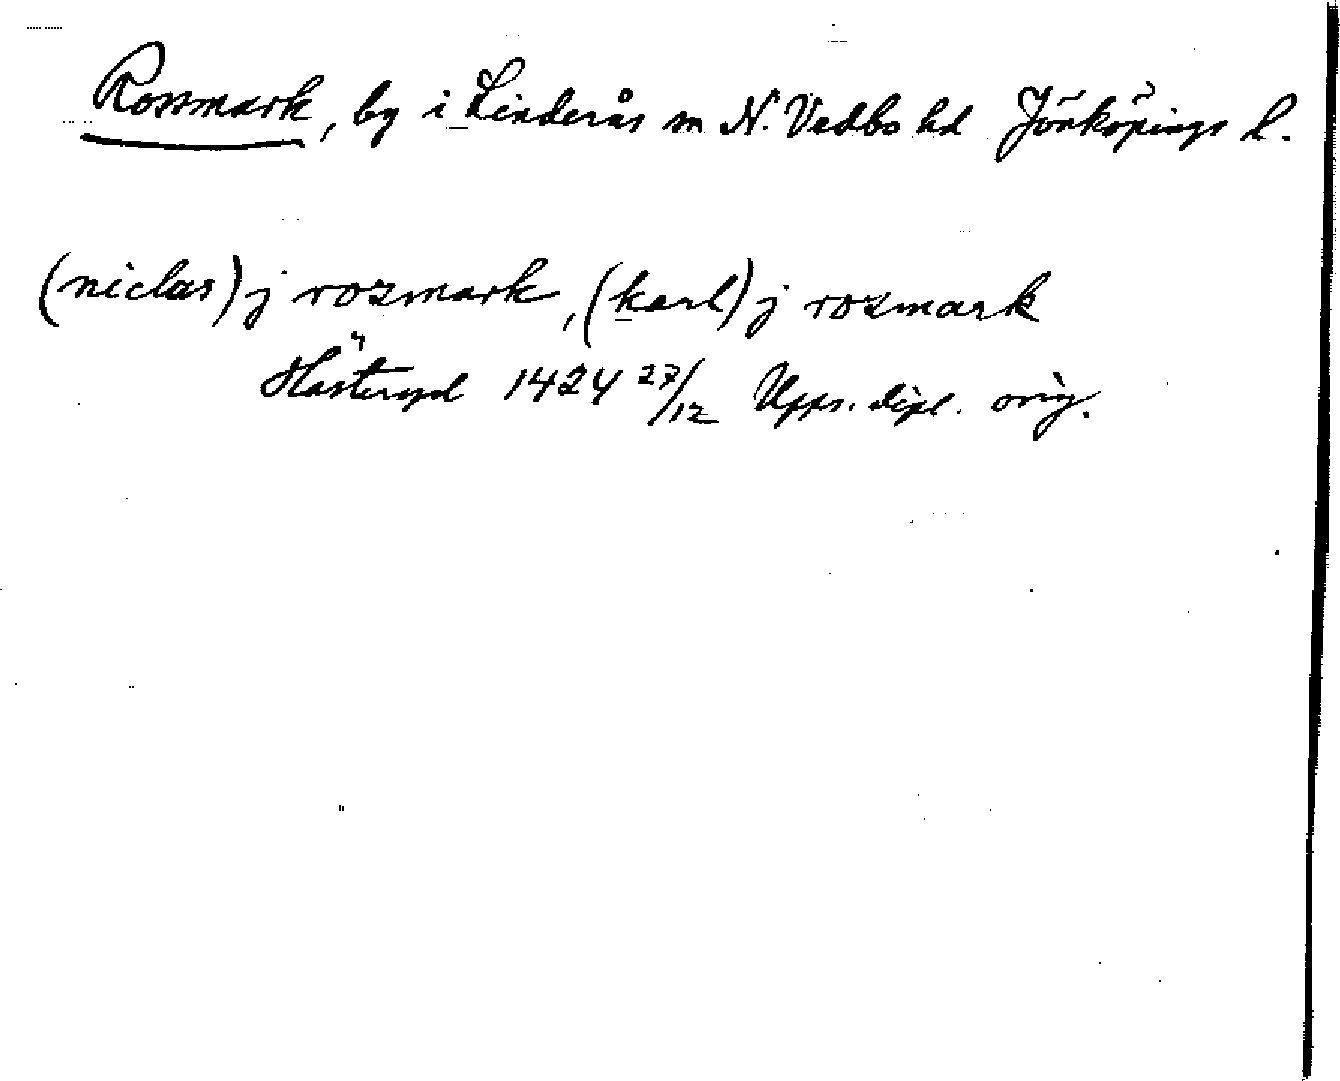 Rossmark, by i Linderås sn N. Vedbo hd Jönköpings l.
(niclas) j rozmark, (karl) j rozmark
Hästeryd 1424 27/12 Upps. dipl. orig.